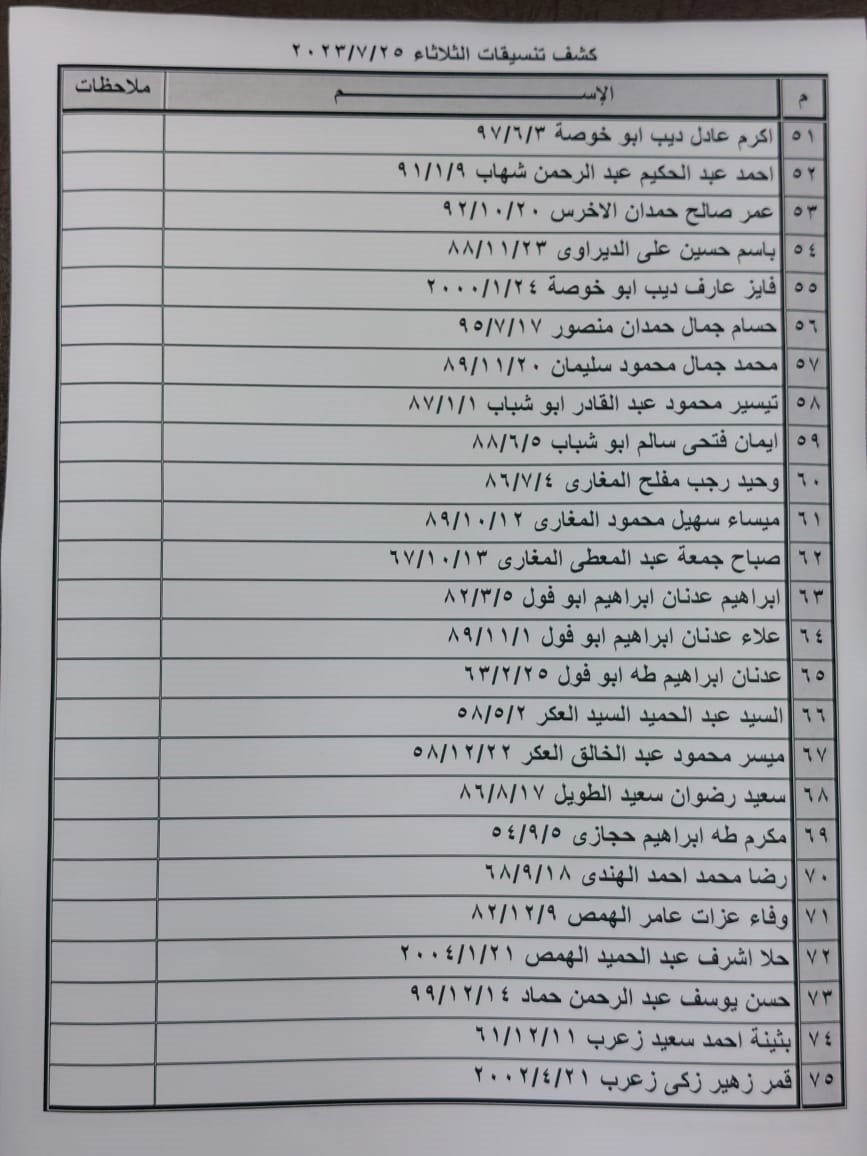 كشف تنسيقات الثلاثاء ٢٠٢٣/٧/٢٥
م الإســـــــم ملاحظات
٥١ اكرم عادل ديب ابو خوصة ٩٧/٦/٣
٥٢ احمد عبد الحكيم عبد الرحمن شهاب ٩١/١/٩
٥٣ عمر صالح حمدان الاخرس ٩٢/١٠/٢٠
٥٤ باسم حسين على الديراوى ٨٨/١١/٢٣
٥٥ فايز عارف ديب ابو خوصة ٢٠٠٠/١/٢٤
٥٦ حسام جمال حمدان منصور ٩٥/٧/١٧
٥٧ محمد جمال محمود سليمان ٨٩/١١/٢٠
٥٨ تيسير محمود عبد القادر ابو شباب ٨٧/١/١
٥٩ ايمان فتحى سالم ابو شباب ٨٨/٦/٥
٦٠ وحيد رجب مفلح المغارى ٨٦/٧/٤
٦١ ميساء سهيل محمود المغارى ٨٩/١٠/١٢
٦٢ صباح جمعة عبد المعطى المغارى ٦٧/١٠/١٣
٦٣ ابراهيم عدنان ابراهيم ابو فول ٨٢/٣/٥
٦٤ علاء عدنان ابراهيم ابو فول ٨٩/١١/١
٦٥ عدنان ابراهيم طه ابو فول ٦٣/٢/٢٥
٦٦ السيد عبد الحميد السيد العكر ٥٨/٥/٢
٦٧ ميسر محمود عبد الخالق العكر ٥٨/١٢/٢٢
٦٨ سعيد رضوان سعيد الطويل ٨٦/٨/١٧
٦٩ مكرم طه ابراهيم حجازى ٥٤/٩/٥
٧٠ رضا محمد احمد الهندى ٦٨/٩/١٨
٧١ وفاء عزات عامر الهمص ٨٢/١٢/٩
٧٢ حلا اشرف عبد الحميد الهمص ٢٠٠٤/١/٢١
٧٣ حسن يوسف عبد الرحمن حماد ٩٩/١٢/١٤
٧٤ بثينة احمد سعيد زعرب ٦١/١٢/١١
٧٥ قمر زهير زكى زعرب ٢٠٠٢/٤/٢١